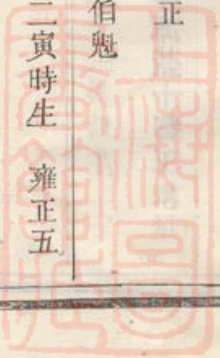 正
伯魁
二寅時生 雍正五